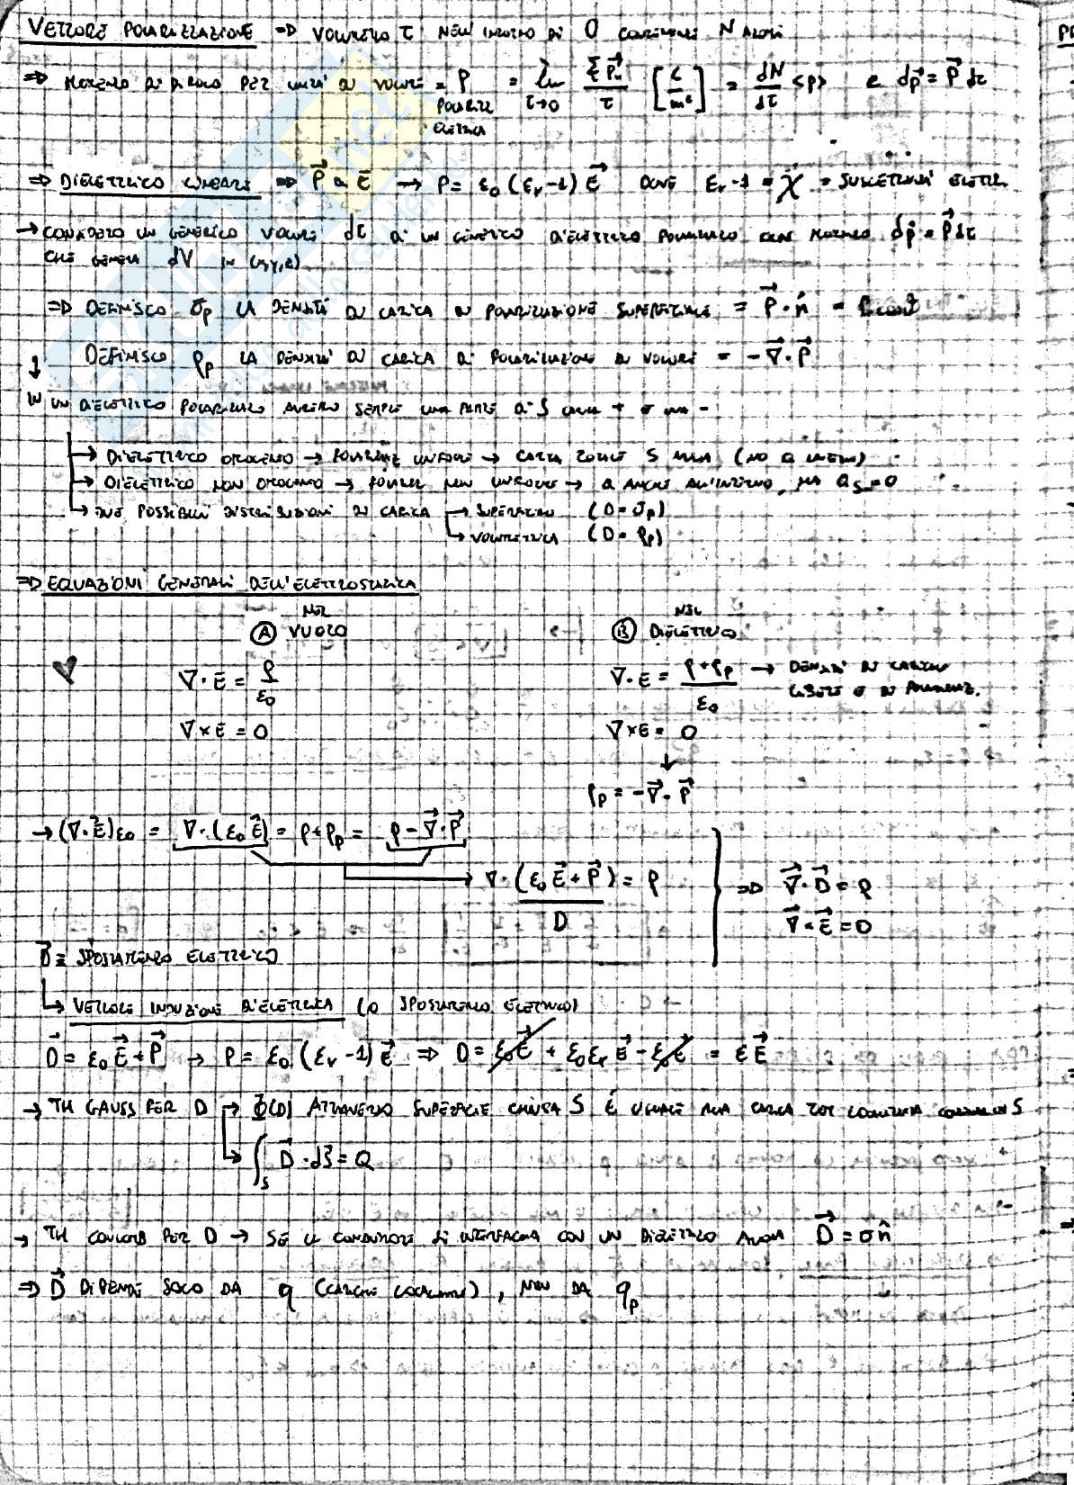 VETTORE POLARIZZAZIONE ⇒ VOLUMETTO τ NELL'INTORNO DI O CONTENENTE N ATOMI
⇒ MOMENTO DI DIPOLO PER UNITÀ DI VOLUME = P = lim τ→0 Σ P⃗ₙ / τ [C/m²] = dN/dτ <p> e dp⃗ = P⃗ dτ
POLARIZZ
ELETTRICA
⇒ DIELETTRICO LINEARE ⇒ P⃗ α E⃗ → P = ε₀ (εᵣ-1) E⃗ DOVE εᵣ-1 = χ = SUSCETTIVITÀ ELETTR.
→ CONSIDERO UN GENERICO VOLUME dτ DI UN GENERICO DIELETTRICO POLARIZZATO CON MOMENTO dp⃗ = P⃗ dτ
CHE GENERA dV IN (x,y,z)
⇒ DEFINISCO σₚ LA DENSITÀ DI CARICA DI POLARIZZAZIONE SUPERFICIALE = P⃗ · n̂ = P cosθ
↓ DEFINISCO ρₚ LA DENSITÀ DI CARICA DI POLARIZZAZIONE DI VOLUME = -∇⃗ · P⃗
IN UN DIELETTRICO POLARIZZATO AVREMO SEMPRE UNA PARTE DI S + -
→ DIELETTRICO OMOGENEO → POLARIZZ UNIFORME → CARICA S
→ DIELETTRICO NON OMOGENEO → POLARIZZ NON UNIFORME → Q ANCHE ALL'INTERNO, MA =0
→ DUE POSSIBILI DISTRIBUZIONI DI CARICA → SUPERFICIALE (D=σₚ)
→ VOLUMETRICA (D=ρₚ)
⇒ EQUAZIONI GENERALI DELL'ELETTROSTATICA
Ⓐ NEL VUOTO Ⓑ NEL DIELETTRICO
∇·E = ρ/ε₀ ∇·E = (ρ+ρₚ)/ε₀ → DENSITÀ DI CARICHE
LIBERE E DI POLARIZZ.
∇×E = 0 ∇×E = 0
↓
ρₚ = -∇⃗ · P⃗
→ (∇·E⃗)ε₀ = ∇·(ε₀E⃗) = ρ+ρₚ = ρ-∇⃗·P⃗
→ ∇·(ε₀E⃗+P⃗) = ρ ⇒ ∇⃗·D⃗ = ρ
D ∇⃗×E⃗ = 0
D⃗ = SPOSTAMENTO ELETTRICO
→ VETTORE INDUZIONE DIELETTRICA (O SPOSTAMENTO ELETTRICO)
D⃗ = ε₀E⃗+P⃗ → P = ε₀(εᵣ-1)E⃗ ⇒ D = ε₀E⃗ + ε₀εᵣE⃗ - ε₀E⃗ = εE⃗
→ TH GAUSS PER D → Φ(D) ATTRAVERSO SUPERFICIE CHIUSA S È UGUALE ALLA CARICA TOT S
→ ∫ₛ D⃗·dS⃗ = Q
→ TH COULOMB PER D → SE IL CONDUTTORE SI INTERFACCIA CON UN DIELETTRICO D⃗ = σn̂
⇒ D⃗ DIPENDE SOLO DA q (CARICHE LOCALIZZATE), NON DA qₚ